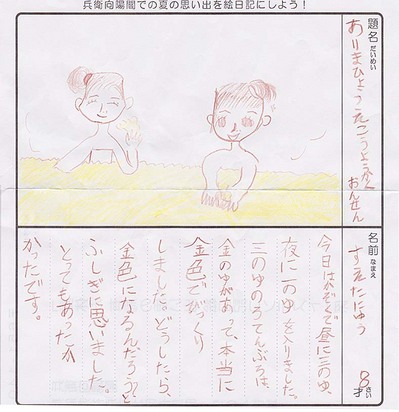 兵衛向陽閣での夏の思い出を絵日記にしよう！
題名
だいめい
ありまひょうえこうようかく
おんせん
名前
なまえ
すえたにゆう
8才
さい
今日はかぞくで昼に三のゆ、
夜に一のゆを入りました。
三のゆのろてんぶろは、
金のゆがあって、本当に
金色でびっくり
しました。どうしたら、
金色になるんだろう？と
ふしぎに思いました。
とってもあったか
かったです。